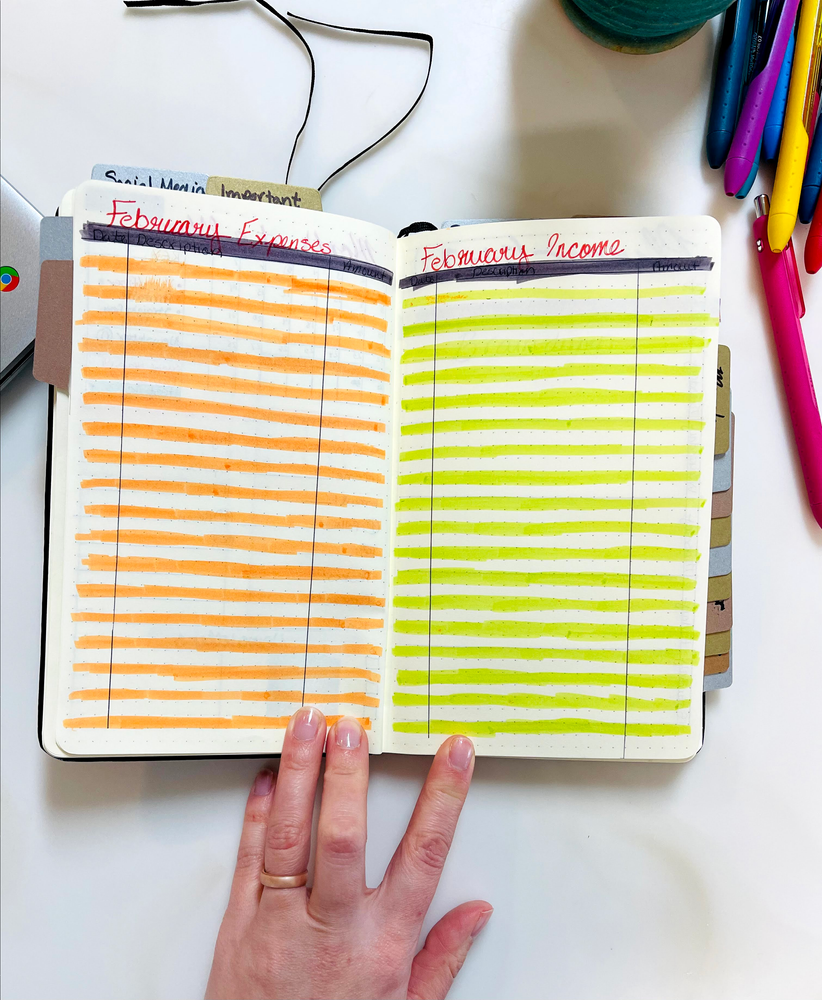 Social Media
Important
February Expenses
Date Description Amount
February Income
Date Description Amount